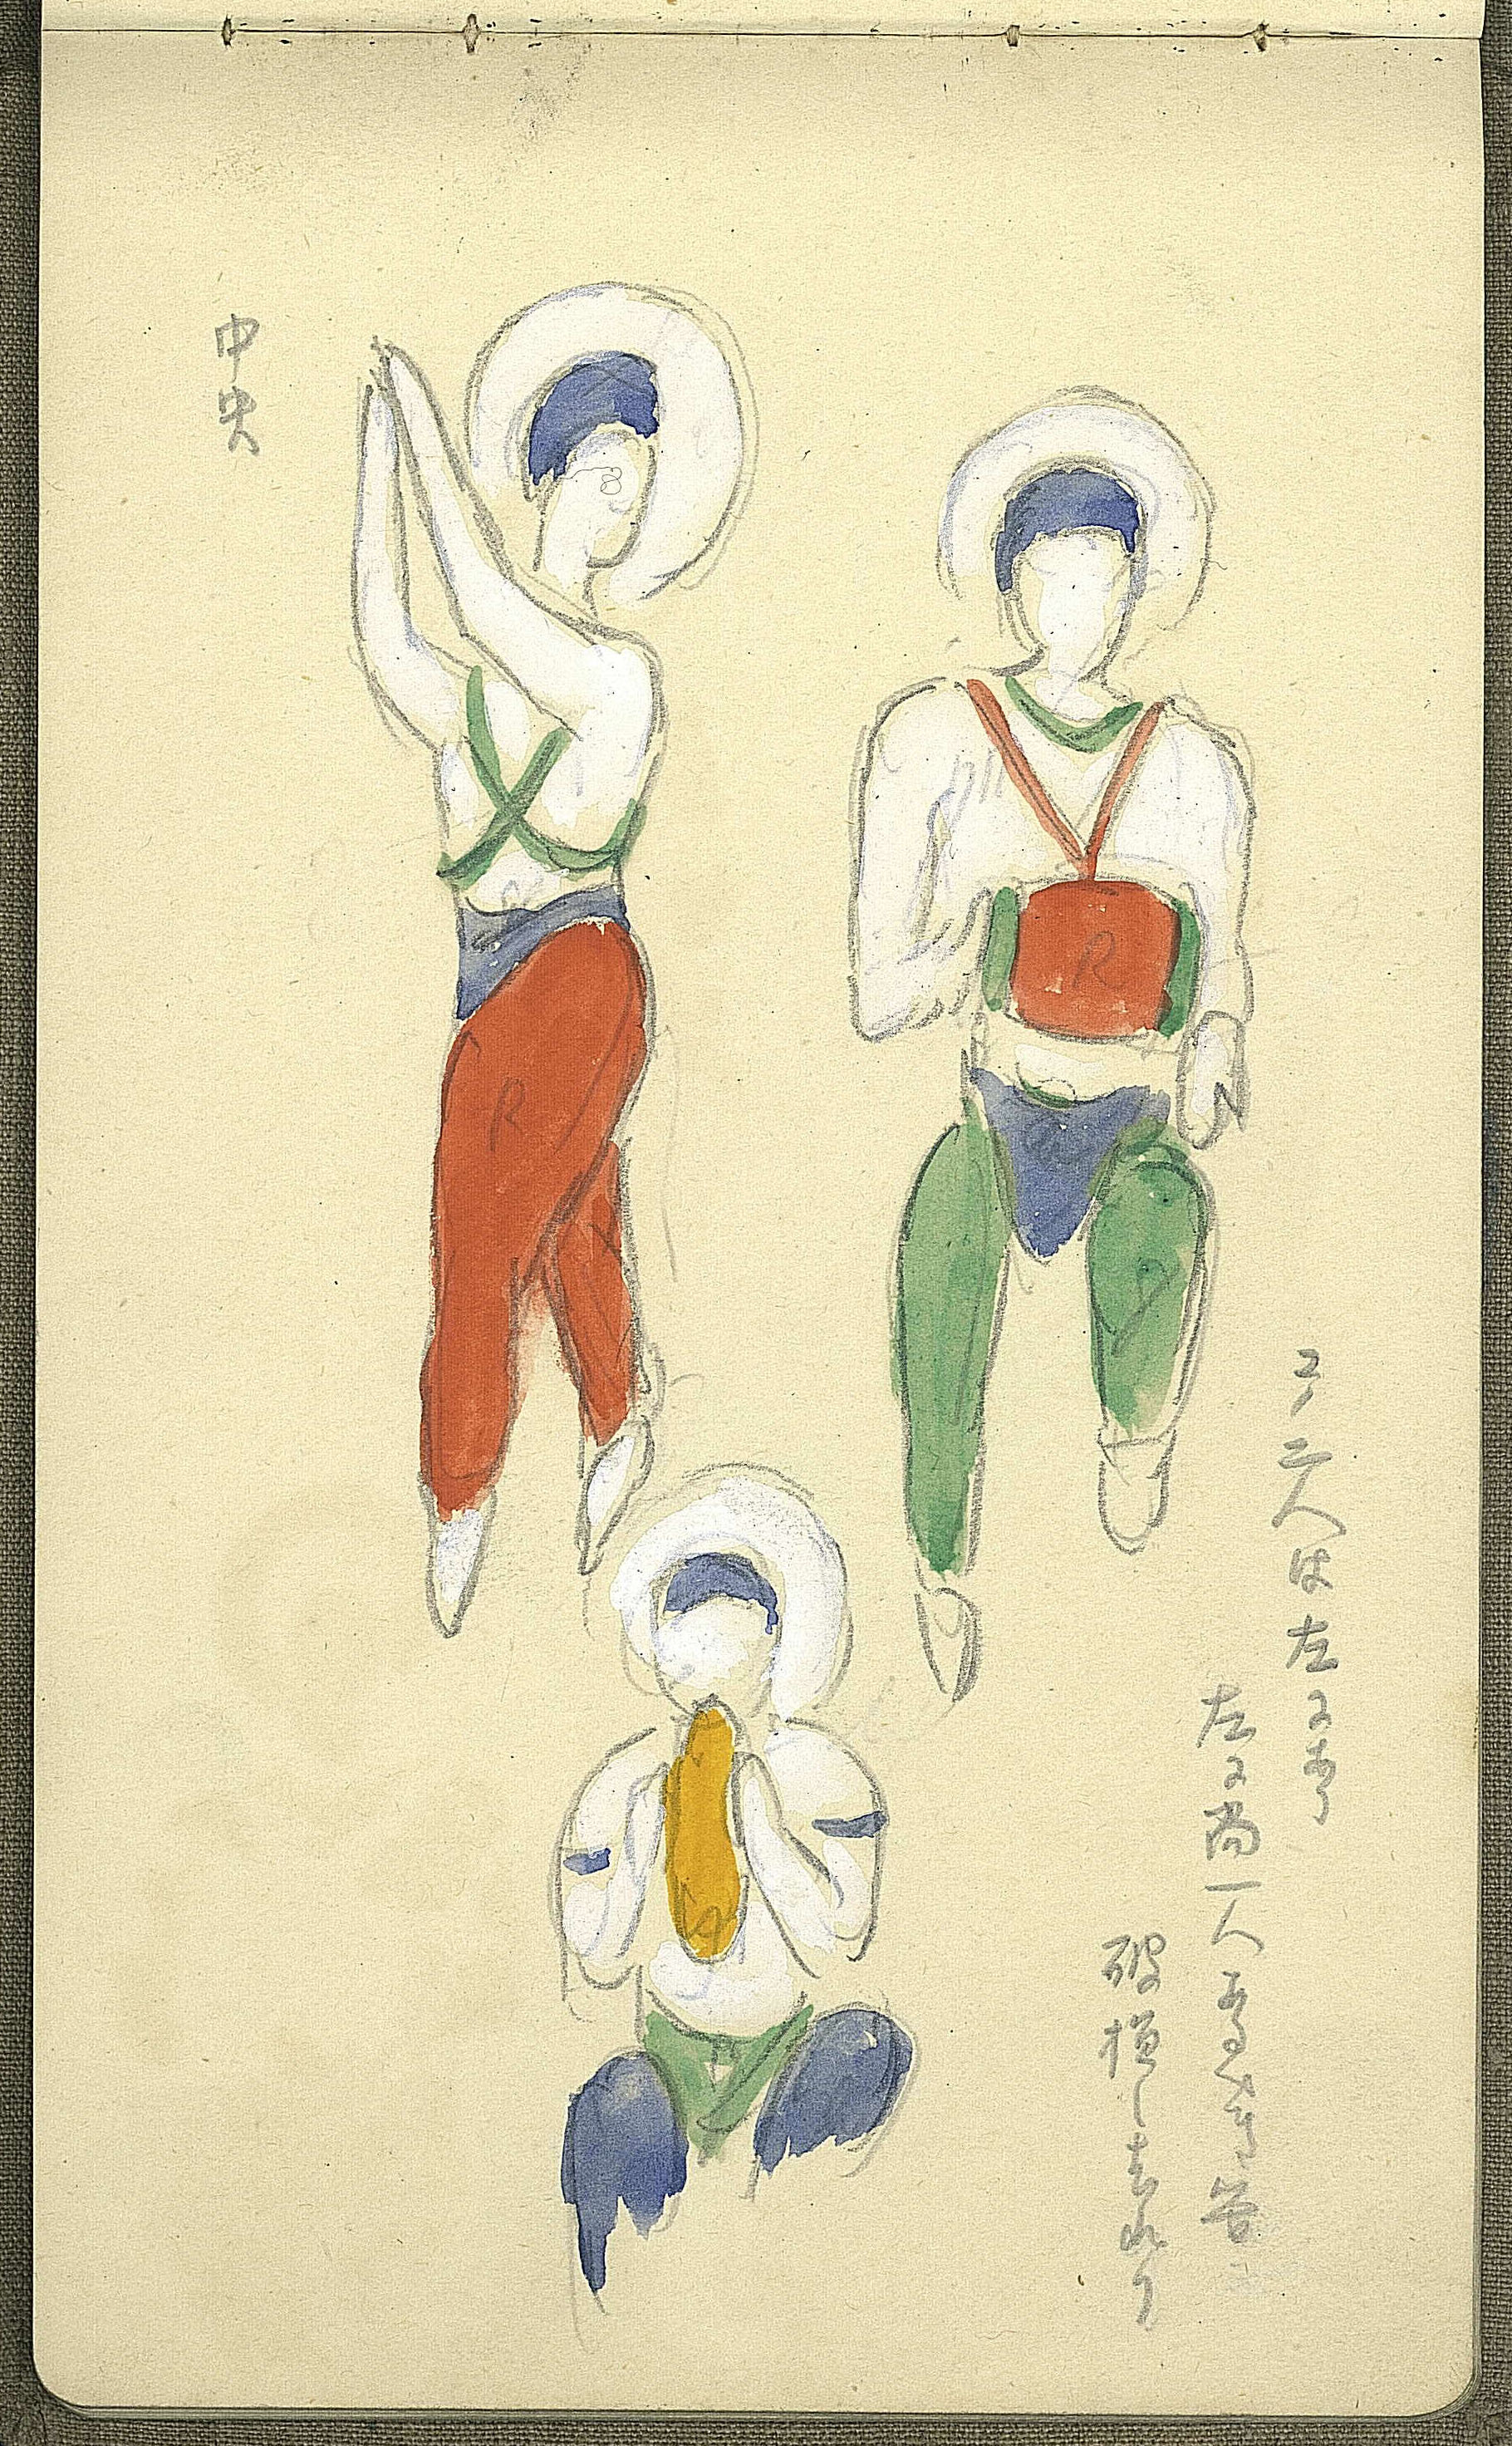 中央
二人は左にあり
左に尚一人あるべき筈
破損し去れり
R
R